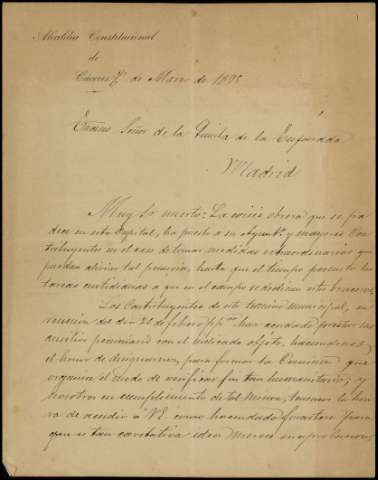 Alcaldía Constitucional
de
Cáceres 7 de Marzo de 1898
Excmo Señor de la de la Enjarada
Madrid
Muy Sr nuestro: La crisis obrera que se pa-
dece en esta Capital, ha puesto a su Ayuntº. y mayores Con-
tribuyentes en el caso de tomar medidas extraordinarias que
puedan aliviar tal penuria, hasta que el tiempo permita las
tareas cuotidianas a que en el campo se dedican estos braceros
Los Contribuyentes de este termino municipal, en
reunion del dia 26 de febrero ppmo han acordado prestar sus
auxilios pecuniarios con el indicado objeto, haciendonos
el honor de designarnos, para formar la Comision que
organice el modo de verificar fin tan humanitario; y
nosotros en cumplimiento de tal mision, tenemos la hon-
ra de acudir a V.E. como hacendado forastero para
que si tan caritativa idea merece su aprobacion,